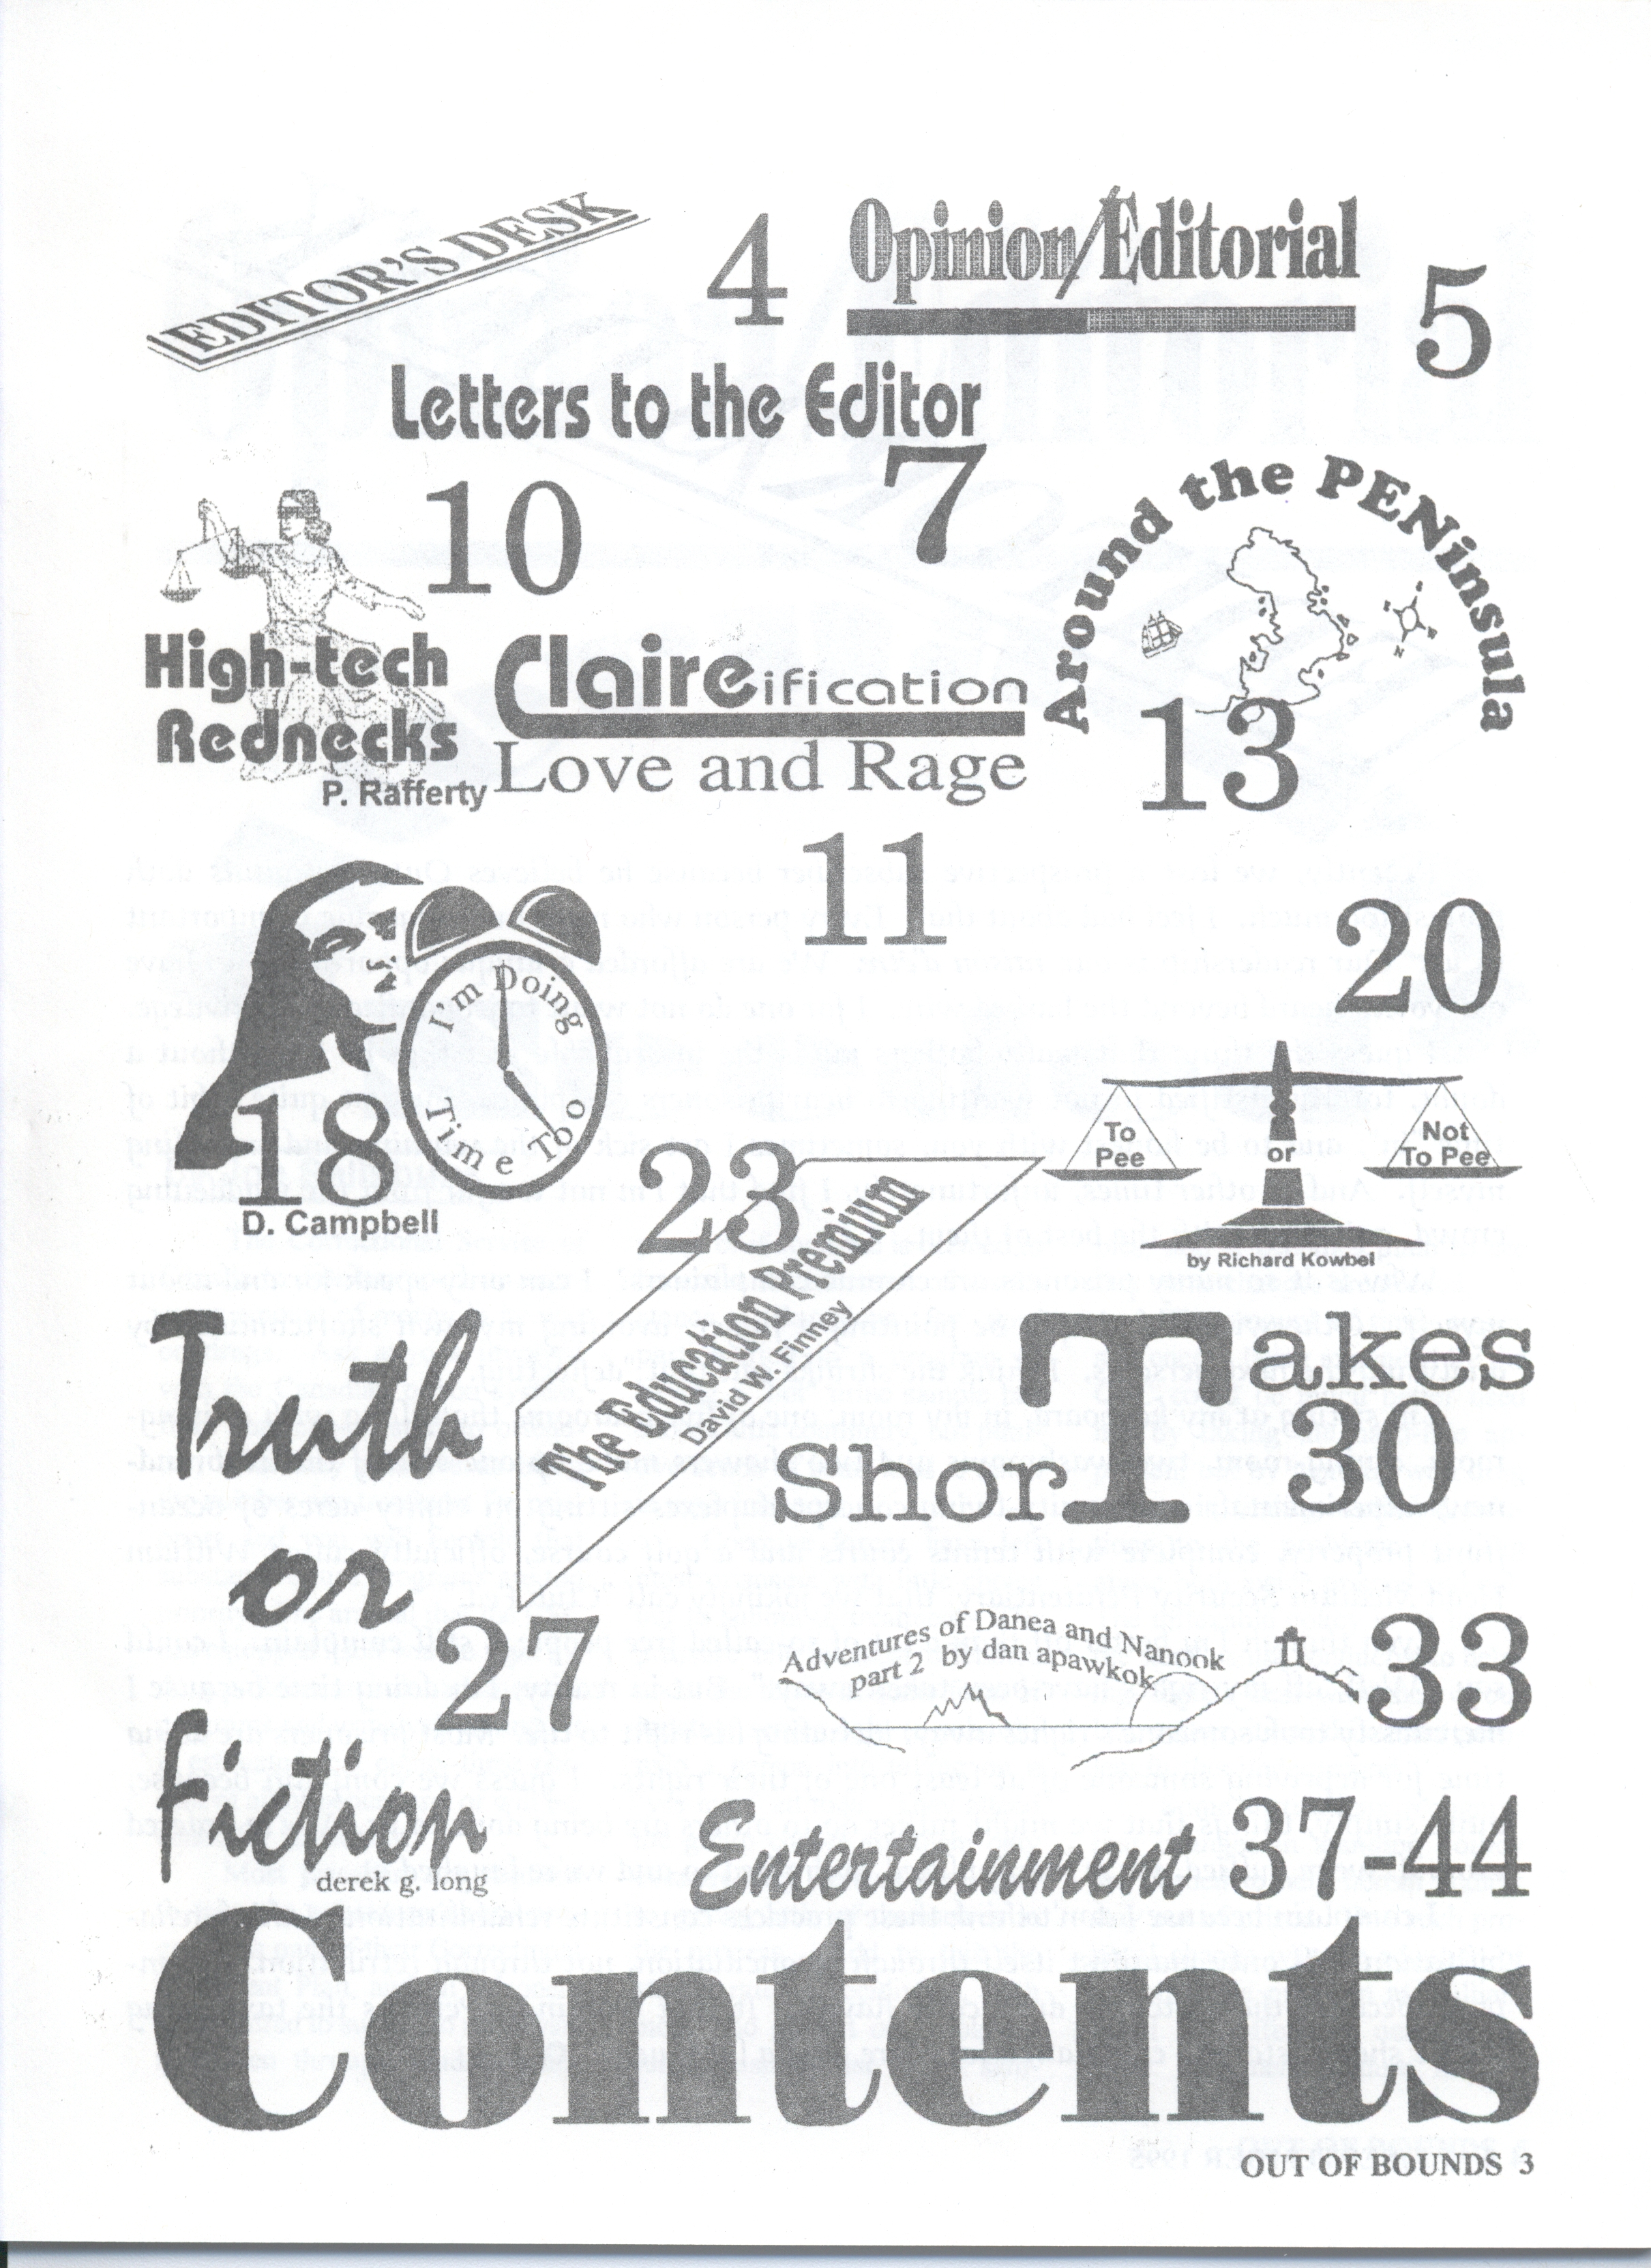 EDITOR'S DESK
4
Opinion/Editorial
5
Letters to the Editor
7
10
High-tech
Rednecks
P. Rafferty
Claireification
Love and Rage
11
Around the PENinsula
13
I'm Doing
Time Too
18
D. Campbell
20
To
Pee
or
Not
To Pee
by Richard Kowbel
23
The Education Priemium
David W. Finney
Truth
or
Fiction
27
derek g. long
ShorTakes
30
Adventures of Danea and Nanook
part 2 by dan apawkok
33
Entertainment 37-44
Contents
OUT OF BOUNDS 3